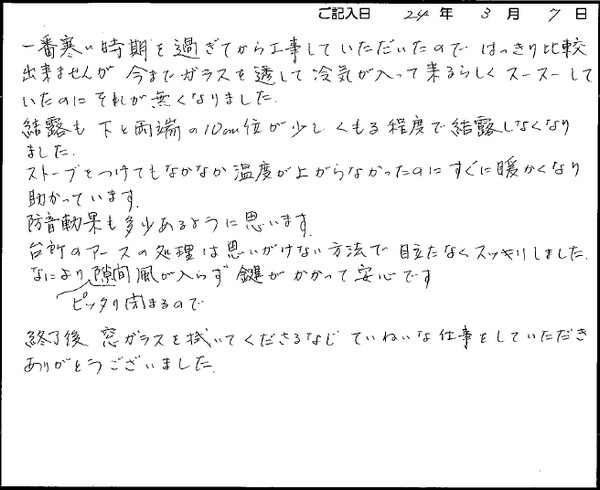 ご記入日 24年 3月 7日
一番寒い時期を過ぎてから工事していただいたので はっきり比較
出来ませんが 今までガラスを透して冷気が入って来るらしくスースーして
いたのにそれが無くなりました.
結露も 下と両端の10cm位が少しくもる程度で結露しなくなり
ました.
ストーブをつけてもなかなか温度が上がらなかったのにすぐに暖かくなり
助かっています.
防音効果も多少あるように思います.
台所のアースの処理は思いがけない方法で目立たなくスッキリしました.
なにより隙間風が入らず 鍵がかかって安心です
ピッタリ閉まるので
終了後 窓ガラスを拭いてくださるなど ていねいな仕事をしていただき
ありがとうございました.